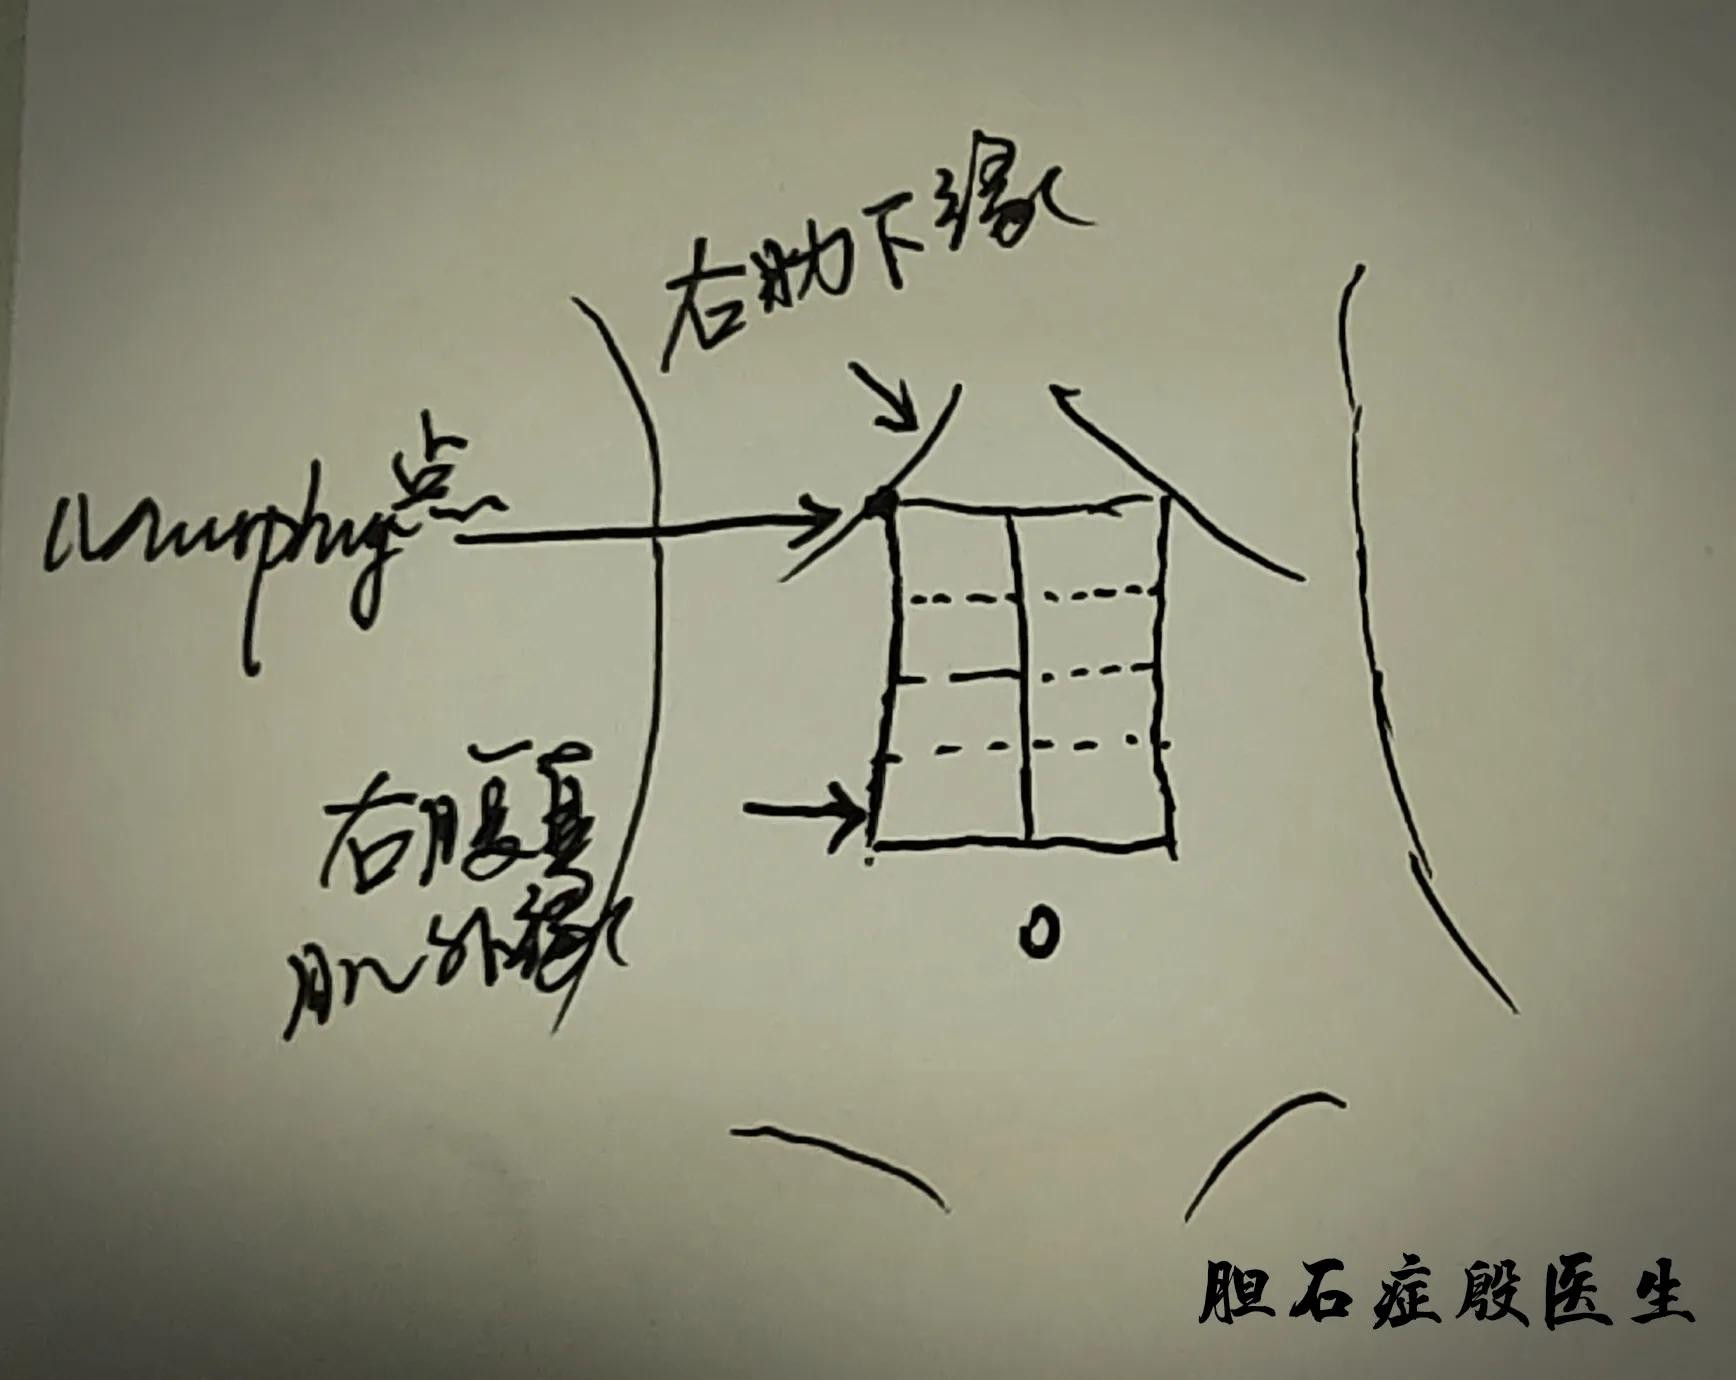 右肋下缘
Murphy点
右腹直
肌外缘
胆石症殷医生